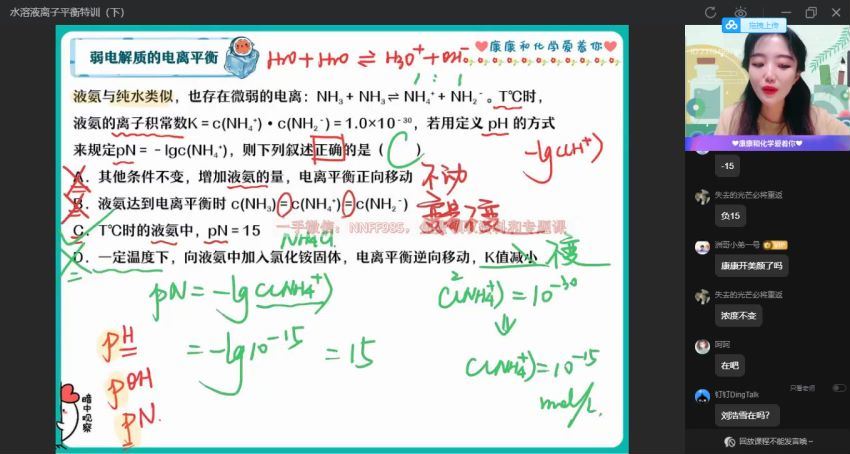 水溶液离子平衡特训（下）
拖拽上传
弱电解质的电离平衡
H₂O + H₂O ⇌ H₃O⁺ + OH⁻
1 : 1
康康和化学爱着你
液氨与纯水类似，也存在微弱的电离：NH₃ + NH₃ ⇌ NH₄⁺ + NH₂⁻。T℃时，
液氨的离子积常数K = c(NH₄⁺)•c(NH₂⁻) = 1.0×10⁻³⁰，若用定义 pH 的方式
来规定pN = －lgc(NH₄⁺)，则下列叙述正确的是（ C ）
-lgc(H⁺)
A．其他条件不变，增加液氨的量，电离平衡正向移动
不动
B．液氨达到电离平衡时 c(NH₃) = c(NH₄⁺) = c(NH₂⁻)
不变
一手微信：NNFF985，
C．T℃时的液氨中，pN = 15
NH₄Cl
D．一定温度下，向液氨中加入氯化铵固体，电离平衡逆向移动，K值减小
不变
pN = -lg c(NH₄⁺)
= -lg 10⁻¹⁵ = 15
c²(NH₄⁺) = 10⁻³⁰
⇓
c(NH₄⁺) = 10⁻¹⁵
mol/L
pH
pOH
pN.
暗中观察
康康和化学爱着你
-15
失去的光芒必将重返
负15
洲哥小弟一号
康康开美颜了吗
失去的光芒必将重返
浓度不变
阿阿
在吧
只看老师
钉钉DingTalk
刘浩雪在吗？
回放课程不能发言噢～